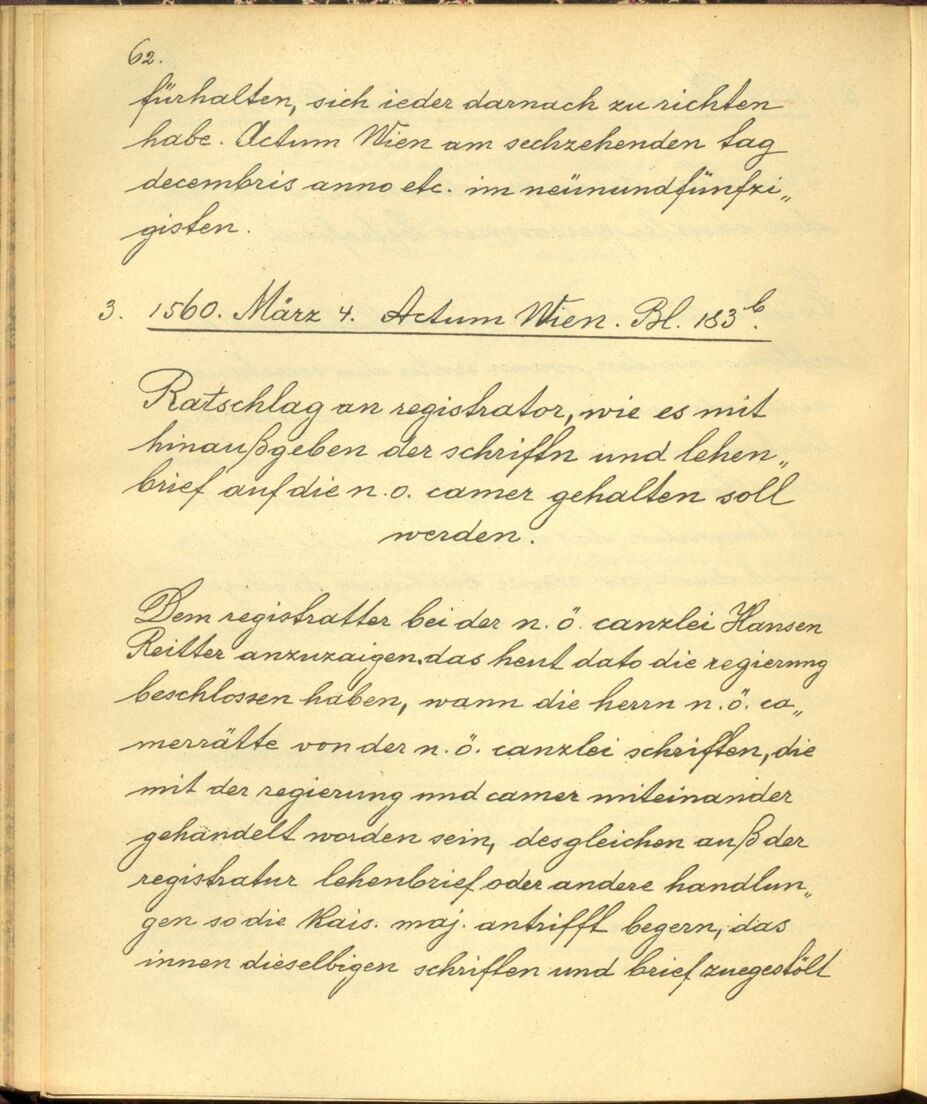 62.
fürhalten, sich ieder darnach zu richten
habe. Actum Wien am sechzehenden tag
decembris anno etc. im neünundfünfzi„
gisten.
3. 1560. März 4. Actum Wien. Bl. 183b.
Ratschlag an registrator, wie es mit
hinaußgeben der schriftn und lehen„
brief auf die n. o. camer gehalten soll
werden.
Dem registratter bei der n. ö. canzlei Hansen
Reitter anzuzaigen, das heut dato die regierung
beschlossen haben, wann die herrn n. ö. ca„
merrätte von der n. ö. canzlei schriften, die
mit der regierung und camer miteinander
gehandelt worden sein, desgleichen auß der
registratur lehenbrief oder andere handlun„
gen so die kais. maj. antrifft begern, das
innen dieselbigen schriften und brief zuegestölt